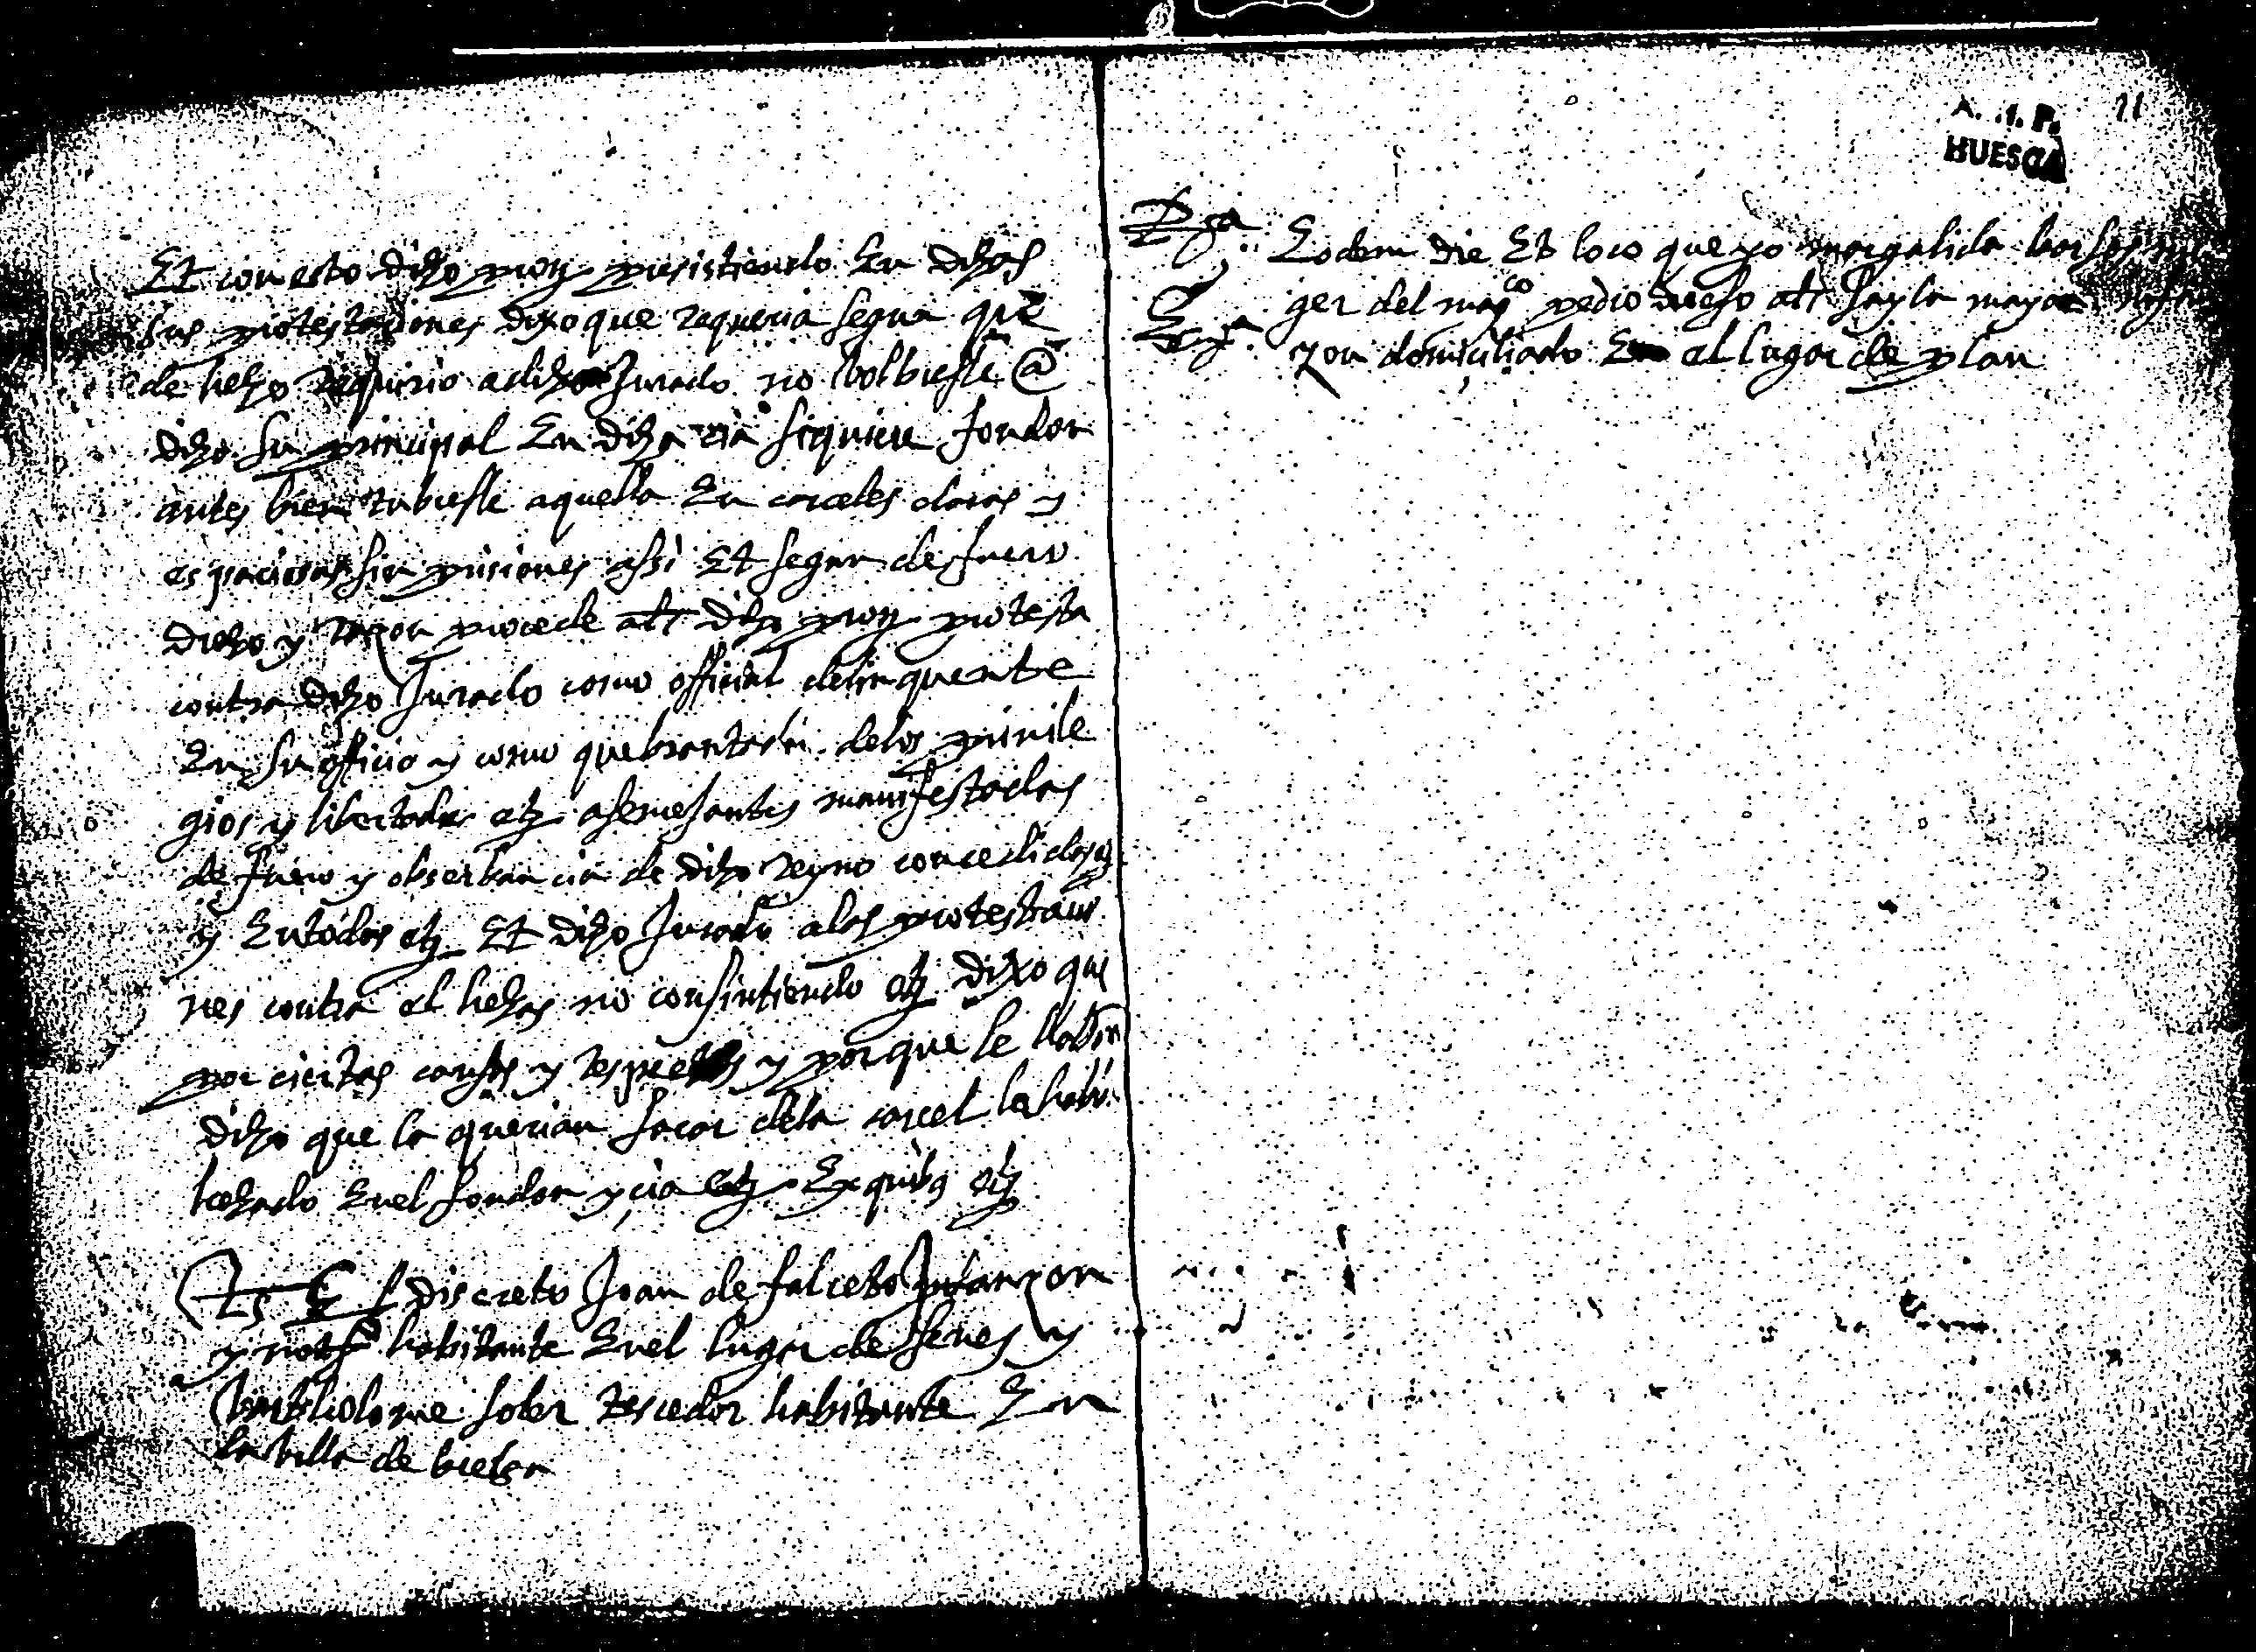 Et con esto dicho pror persistiendo En dichas
sus protestaciones dixo que requeria segun que
de hecho requirio a dicho Jurado no bolbiesse @
dicho su principal En dicha cia siquiere fondon
antes bien tubiesse aquella En carceles claras y
espaciosas sin prisiones assi Et segun de fuero
drecho y razon procede als dicho pror protesta
contra dicho Jurado como official delinquente
En su officio y como quebrantador delos privile
gios y libertades etz asemejantes manifestadas
de fuero y obserbancia de dicho reyno concedidos
y Entodos etz Et dicho Jurado alas protestacio
nes contra el hechas no consintiendo etz dixo que
por ciertas causas y respectos y porque le habian
dicho que la querian sacar dela carcel la habia
hechado Enel fondon y cia etz Ex quibus etz
Ts El discreto Joan de falceto Infanzon
y notº habitante Enel lugar de senes y
bartholome soler texedor habitante En
la billa de bielsa
A. H. P. 21
HUESCA
Eodem die Et loco que yo margalida
ger del magco pedro als sayla mayor
zon domiciliado En el lugar de plan